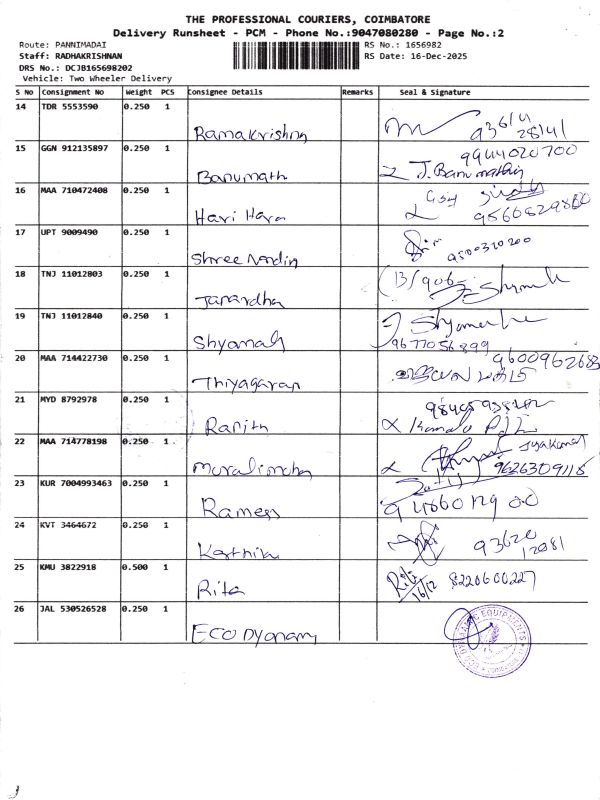 THE PROFESSIONAL COURIERS, COIMBATORE
Delivery Runsheet - PCM - Phone No.:9047080280 - Page No.:2
Route: PANNIMADAI
Staff: RADHAKRISHNAN
DRS No.: DCJB165698202
Vehicle: Two Wheeler Delivery
RS No.: 1656982
RS Date: 16-Dec-2025
S No Consignment No Weight PCS Consignee Details Remarks Seal & Signature
14 TDR 5553590 0.250 1 Ramakrishna
15 GGN 912135897 0.250 1 Banumath 9944020700
J. Banumathi
16 MAA 710472408 0.250 1 Hari Hara
17 UPT 9009490 0.250 1 Shree Nandin 9500320200
18 TNJ 11012803 0.250 1 Janardha
19 TNJ 11012840 0.250 1 Shyamala
9677056899
20 MAA 714422730 0.250 1 Thiyagaran 9600962683
21 MYD 8792978 0.250 1 Ranjith
22 MAA 714778198 0.250 1 Muralimoha Jyakumar
9626309115
23 KUR 7004993463 0.250 1 Ramess
24 KVT 3464672 0.250 1 Karthik 93620
12081
25 KMU 3822918 0.500 1 Rita Rita 16/12 8220600227
26 JAL 530526528 0.250 1 ECO Dyanamy